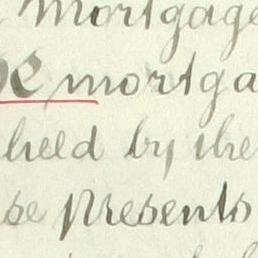 Mortgage
mortga
held by the
se Presents